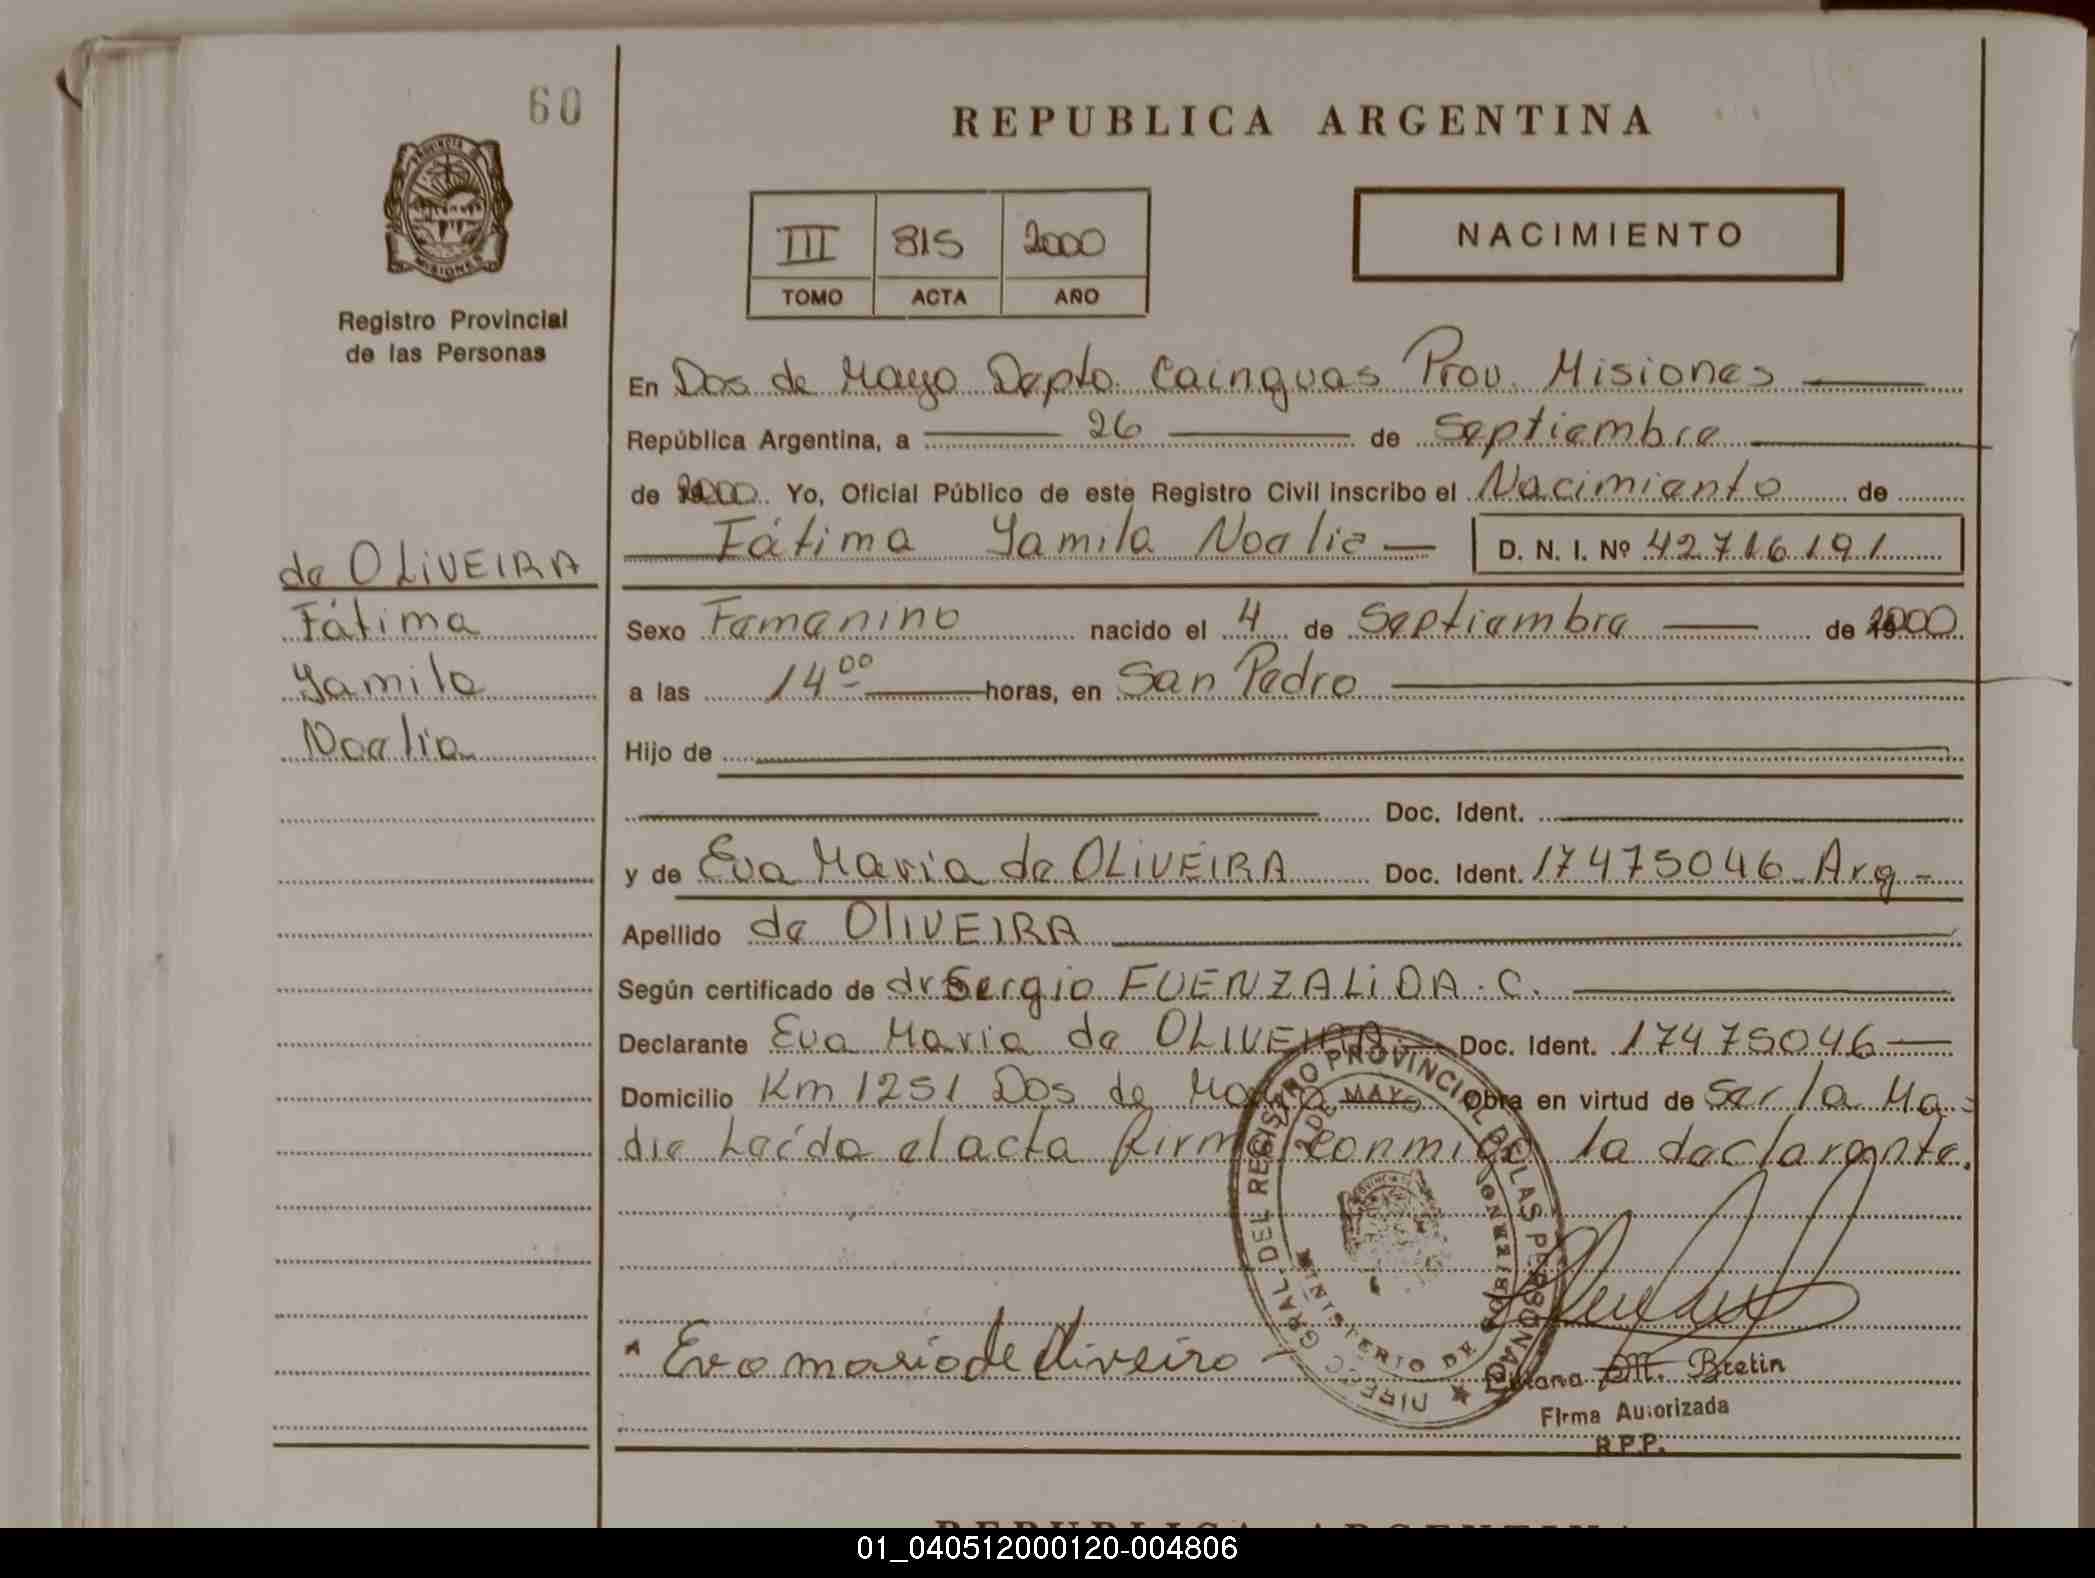 60
REPUBLICA ARGENTINA
PROVINCIA DE
MISIONES
Registro Provincial
de las Personas
III 815 2000
TOMO ACTA AÑO
NACIMIENTO
En Dos de Mayo Depto. Cainguas Prov. Misiones
República Argentina, a 26 de Septiembre
de 2000. Yo, Oficial Público de este Registro Civil inscribo el Nacimiento de
Fátima Yamila Noelia D. N. I. Nº 42716191
de OLiVEIRA
Fátima
Yamila
Noelia
Sexo Femenino nacido el 4 de Septiembre de 2000
a las 14 00 horas, en San Pedro
Hijo de
Doc. Ident.
y de Eva Maria de OLiVEIRA Doc. Ident. 17475046 Arg -
Apellido de OlIVEIRA
Según certificado de dr Sergio FUENZALiDA. C.
Declarante Eva Maria de OLIVEIRA Doc. Ident. 17475046
Domicilio Km 1251 Dos de Mayo Obra en virtud de ser la Ma=
dre Leída el acta firma conmigo la declarante.
DIRECC GRAL. DEL REGISTRO PROVINCIAL DE LAS PERSONAS
2 DE MAYO
MINISTERIO DE GOBIERNO
Eva maria de Oliveira
M. Bretin
Firma Autorizada
R.P.P.
REPUBLICA ARGENTINA
01_040512000120-004806